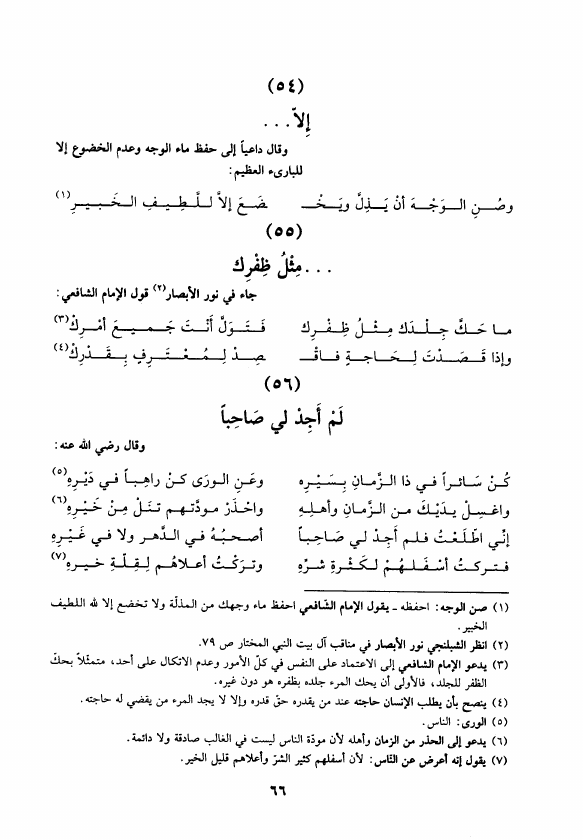 (٥٤)
إلاّ...
وقال داعياً إلى حفظ ماء الوجه وعدم الخضوع إلا
للبارىء العظيم:
وصُنِ الـوَجْـهَ أنْ يَـذِلَّ ويَـخْـ ـضَـعَ إلاَّ لـلَّـطِـيـفِ الـخَـبـيـرِ(١)
(٥٥)
...مِثْلُ ظِفْرِك
جاء في نور الأبصار(٢) قول الإمام الشافعي:
مـا حَـكَّ جِـلْـدَك مِـثْـلُ ظِـفْـرِك فَـتَـوَلَّ أَنْـتَ جَـمـيـعَ أمْـرِكْ(٣)
وإذا قَـصَـدْتَ لِـحَـاجـةٍ فـاقْـ ـصِـدْ لِـمُـعْـتَـرفٍ بِـقَـدْرِكْ(٤)
(٥٦)
لَمْ أَجِدْ لي صَاحِباً
وقال رضي الله عنه:
كُـنْ سَـائـراً فـي ذا الـزَّمـانِ بِـسَـيْـرِه وعَـنِ الـورَى كـنْ راهِـبـاً فـي دَيْـرِهِ(٥)
واغـسِـلْ يـدَيْـكَ مـن الـزَّمـانِ وأهـلِـهِ واحْـذَرْ مودَّتـهـم تـنَـلْ مِـنْ خَـيْـرِهِ(٦)
إنّـي اطَّـلَـعْـتُ فـلـم أجِـدْ لـي صَـاحِـبـاً أصـحـبُـهُ فـي الـدَّهـر ولا فـي غَـيْـرِهِ
فـتـركـتُ أسْـفَـلَـهُـمْ لـكَـثْـرةِ شـرِّهِ وتـركْـتُ أعـلاهُـم لِـقِـلَّـةِ خـيـرهِ(٧)
(١) صن الوجه: احفظه ـ يقول الإمام الشَّافعي احفظ ماء وجهك من المذلّة ولا تخضع إلا لله اللطيف
الخبير.
(٢) انظر الشبلنجي نور الأبصار في مناقب آل بيت النبي المختار ص ٧٩.
(٣) يدعو الإمام الشافعي إلى الاعتماد على النفس في كلّ الأمور وعدم الاتكال على أحد، متمثلاً بحكّ
الظفر للجلد، فالأولى أن يحك المرء جلده بظفره هو دون غيره.
(٤) ينصح بأن يطلب الإنسان حاجته عند من يقدره حقّ قدره وإلا لا يجد المرء من يقضي له حاجته.
(٥) الورى: الناس.
(٦) يدعو إلى الحذر من الزمان وأهله لأن مودّة الناس ليست في الغالب صادقة ولا دائمة.
(٧) يقول إنه أعرض عن النَّاس: لأن أسفلهم كثير الشرّ وأعلاهم قليل الخير.
٦٦